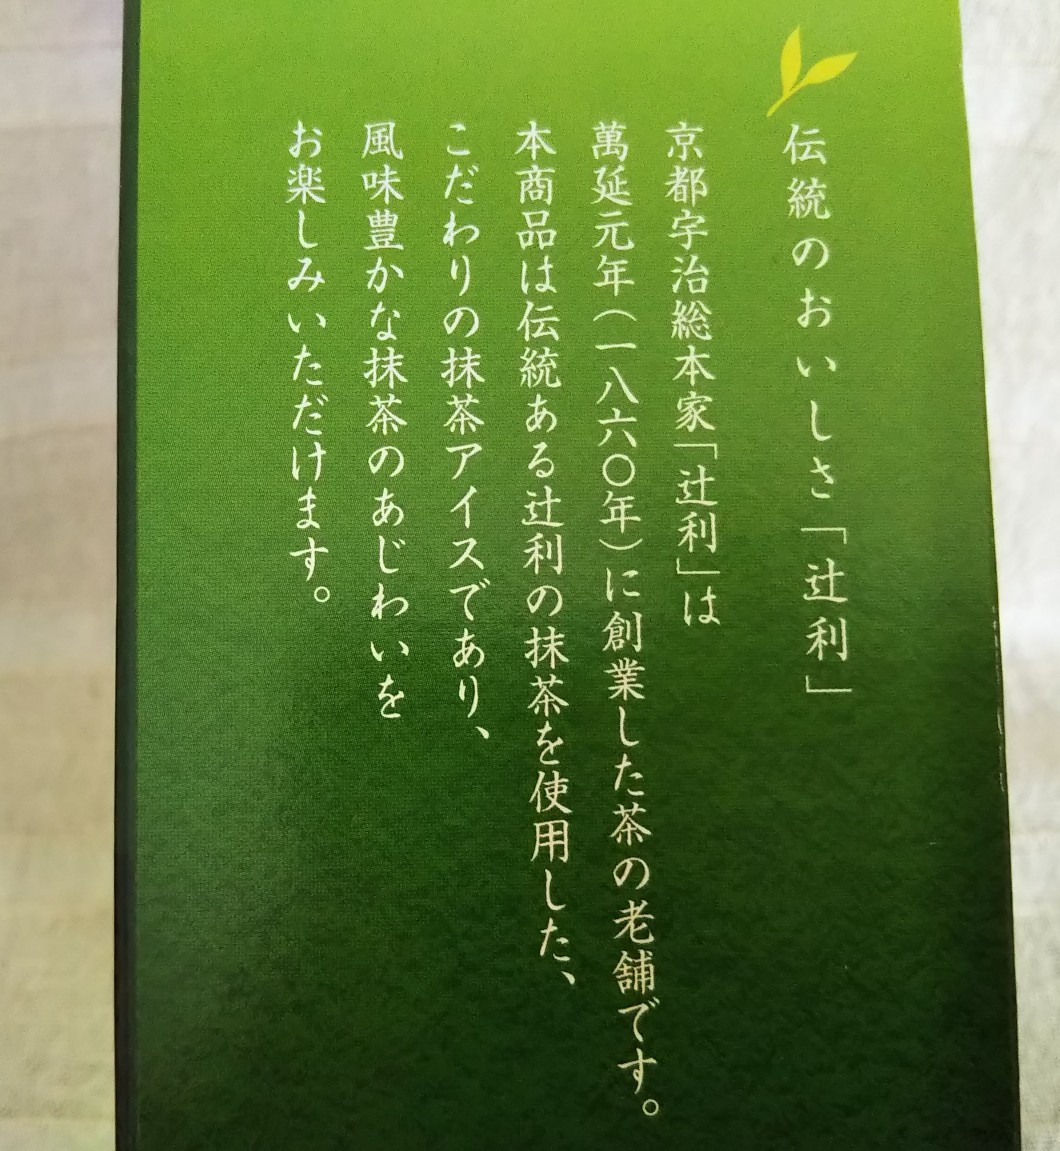 伝統のおいしさ「辻利」
京都宇治総本家「辻利」は
萬延元年(一八六〇年)に創業した茶の老舗です。
本商品は伝統ある辻利の抹茶を使用した、
こだわりの抹茶アイスであり、
風味豊かな抹茶のあじわいを
お楽しみいただけます。